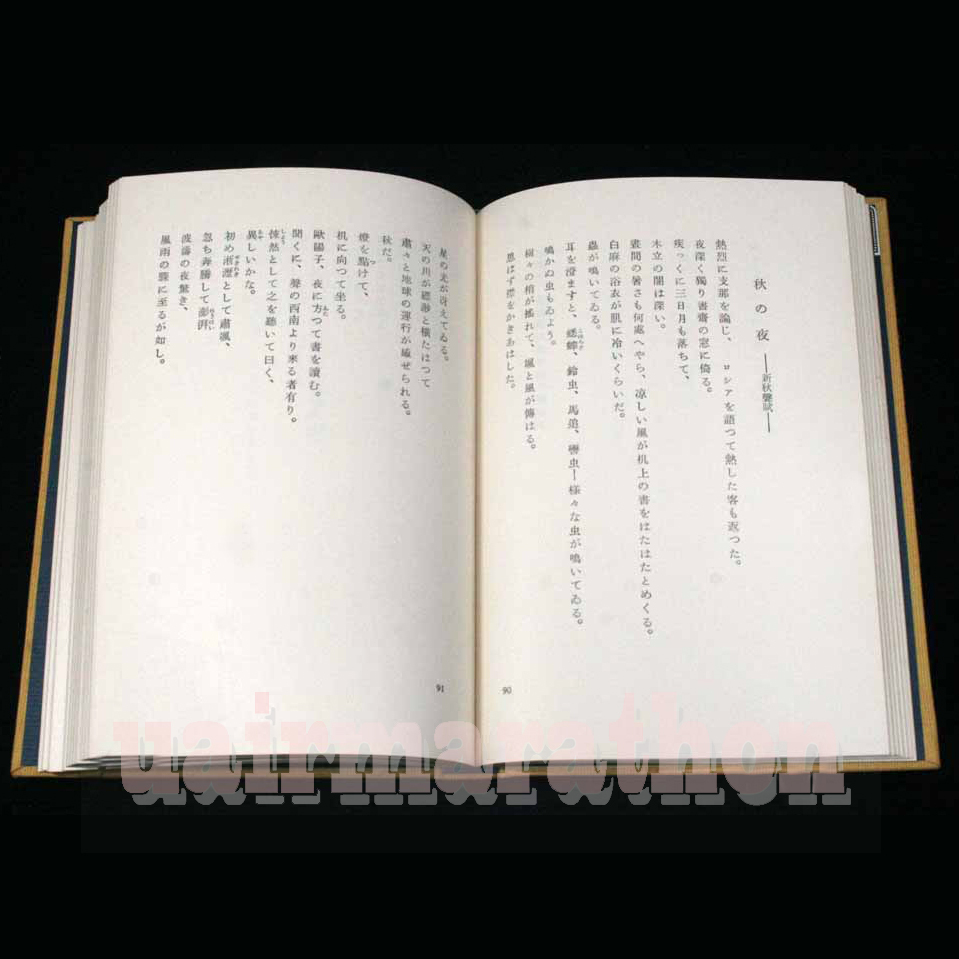 秋の夜 ――新秋聲賦――
熱烈に支那を論じ、ロシアを語つて熱した客も返つた。
夜深く獨り書齋の窓に倚る。
疾っくに三日月も落ちて、
木立の闇は深い。
晝間の暑さも何處へやら、凉しい風が机上の書をはたはたとめくる。
白麻の浴衣が肌に冷いくらいだ。
蟲が鳴いてゐる。
耳を澄ますと、蟋蟀、鈴虫、馬追、轡虫―様々な虫が鳴いてゐる。
鳴かぬ虫もゐよう。
樹々の梢が搖れて、颯と風が傳はる。
思はず襟をかきあはした。
90
星の光が冴えてゐる。
天の川が渺と横たはつて
肅々と地球の運行が感ぜられる。
秋だ。
燈を點けて、
机に向つて坐る。
歐陽子、夜に方つて書を讀む。
聞くに、聲の西南より來る者有り。
悚然として之を聽いて曰く、
異しいかな。
初め淅瀝として肅颯、
忽ち奔騰して澎湃
波濤の夜驚き、
風雨の驟に至るが如し。
91
uairmarathon